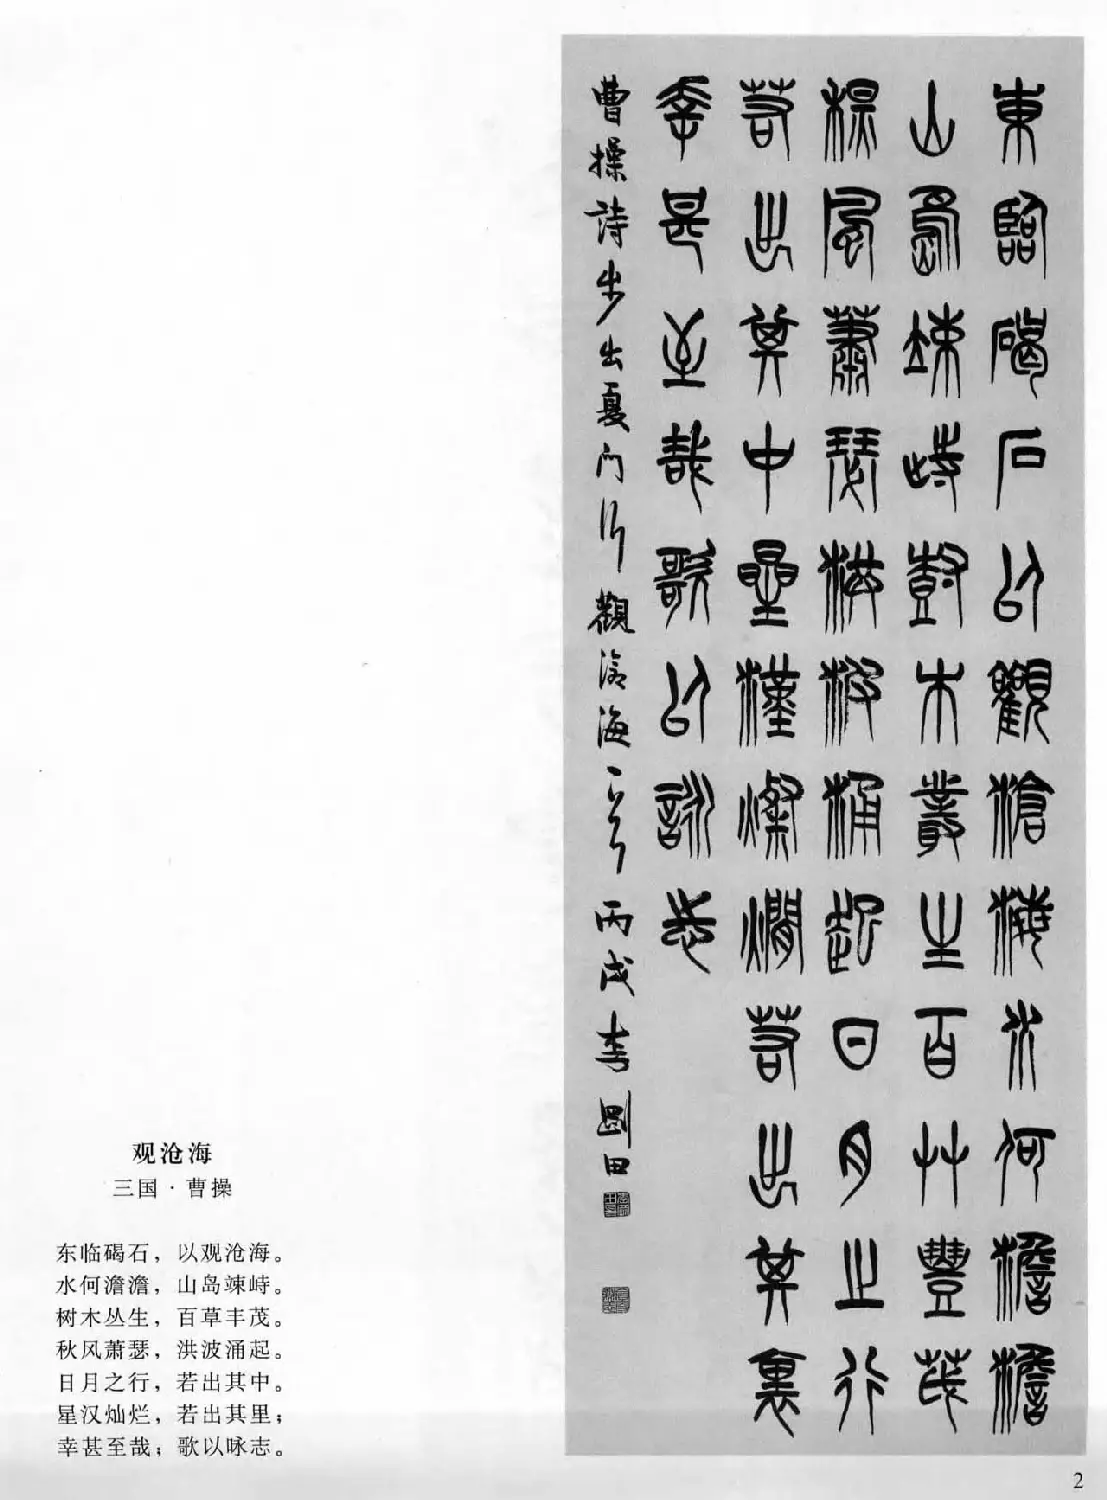 東臨碣石以觀滄海水何澹澹
山島竦峙尌木叢生百艸豐茂
秋風蕭瑟洪波涌起日月之行
若出其中星漢燦爛若出其裏
幸甚至哉歌以詠志
曹操詩步出夏門行觀滄海一首 丙戌李剛田
观沧海
三国·曹操
东临碣石，以观沧海。
水何澹澹，山岛竦峙。
树木丛生，百草丰茂。
秋风萧瑟，洪波涌起。
日月之行，若出其中。
星汉灿烂，若出其里；
幸甚至哉；歌以咏志。
2